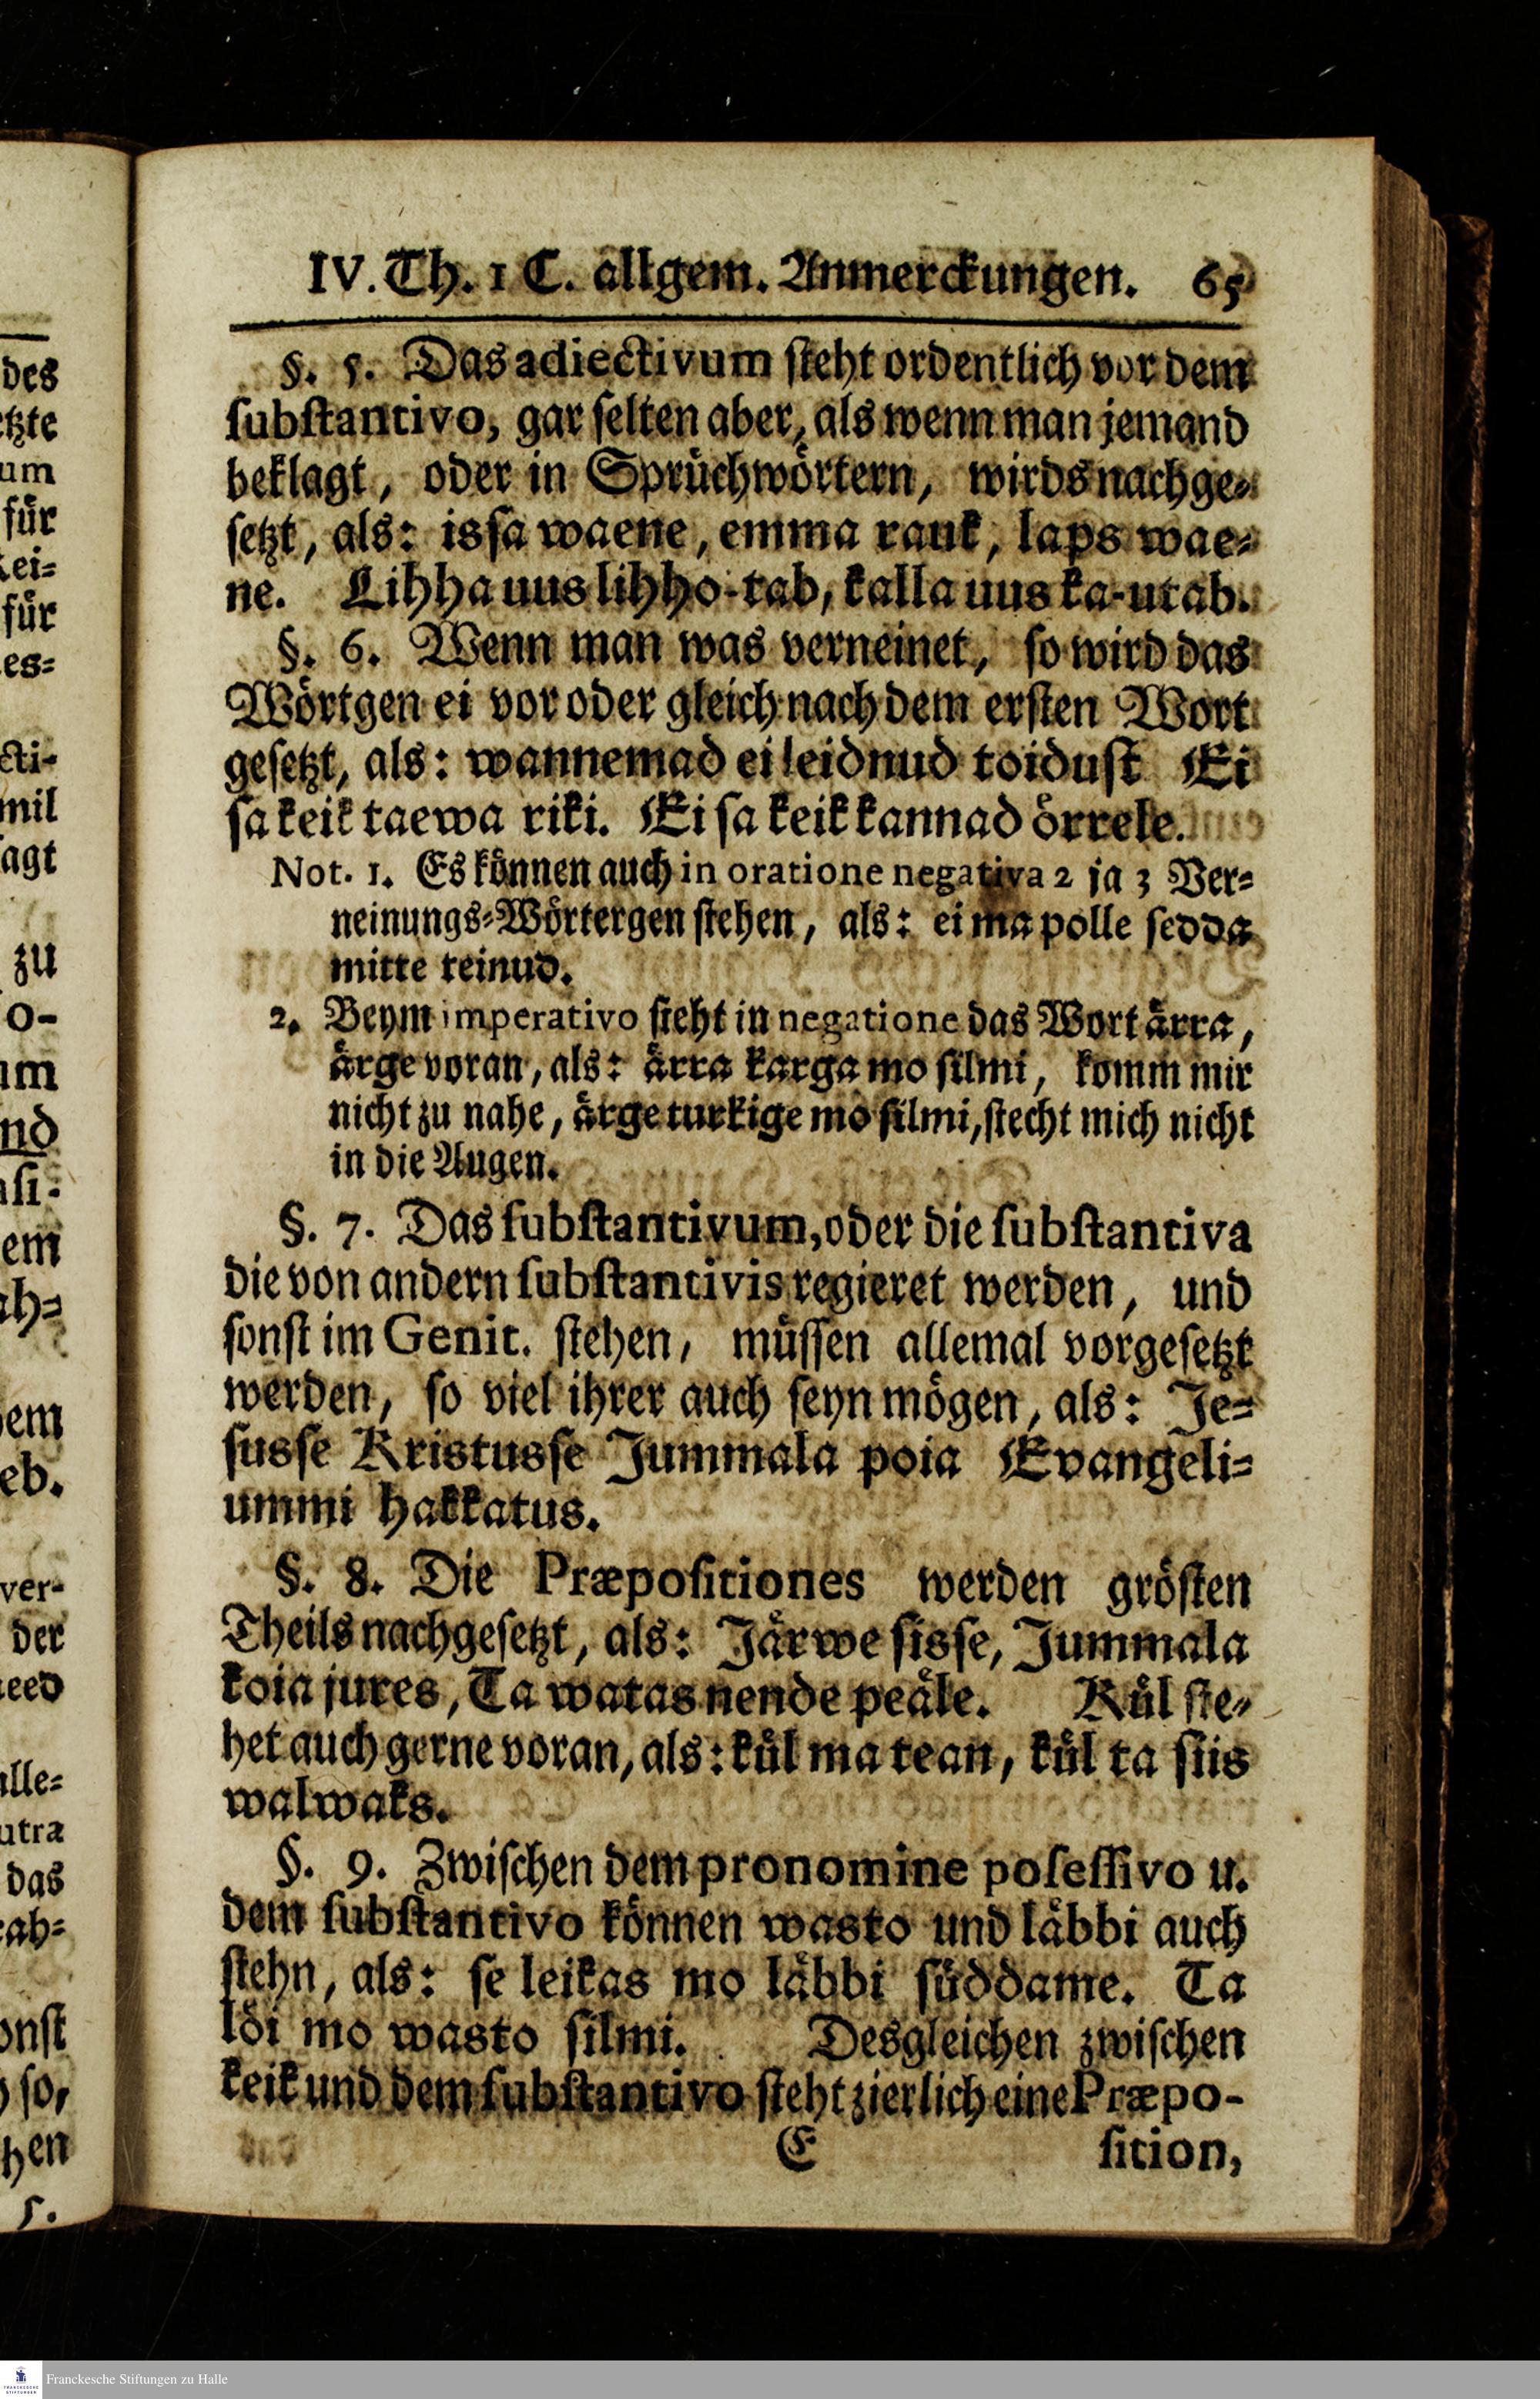 IV. Th. 1 C. allgem. Anmerckungen. 65
§. 5. Das adiectivum steht ordentlich vor dem
substantivo, gar selten aber, als wenn man jemand
beklagt, oder in Sprüchwörtern, wirds nachge-
setzt, als: issa waene, emma rauk, laps wae-
ne. Lihha uus lihho-tab, kalla uus ka-utab.
§. 6. Wenn man was verneinet, so wird das
Wörtgen ei vor oder gleich nach dem ersten Wort
gesetzt, als: wannemad ei leidnud toidust Ei
sa keik taewa riki. Ei sa keik kannad örrele.
Not. 1. Es können auch in oratione negativa 2 ja 3 Ver-
neinungs-Wörtergen stehen, als: ei ma polle sedda
mitte teinud.
2. Beym imperativo steht in negatione das Wort ärra,
ärge voran, als: ärra karga mo silmi, komm mir
nicht zu nahe, ärge turkige mo silmi, stecht mich nicht
in die Augen.
§. 7. Das substantivum, oder die substantiva
die von andern substantivis regieret werden, und
sonst im Genit. stehen, müssen allemal vorgesetzt
werden, so viel ihrer auch seyn mögen, als: Je-
susse Kristusse Jummala poia Evangeli-
ummi hakkatus.
§. 8. Die Præpositiones werden grösten
Theils nachgesetzt, als: Järwe sisse, Jummala
koia jures, Ta watas nende peäle. Kül ste-
het auch gerne voran, als: kül ma tean, kül ta siis
walwaks.
§. 9. Zwischen dem pronomine posessivo u.
dem substantivo können wasto und läbbi auch
stehn, als: se leikas mo läbbi süddame. Ta
löi mo wasto silmi. Desgleichen zwischen
keik und dem substantivo steht zierlich eine Præpo-
E sition,
des
tzte
um
für
für
es-
cti-
mil
agt
zu
o-
um
nd
em
ah-
eb.
ver-
der
eed
alle-
utra
das
ab-
onst
so,
hen
5.
Franckesche Stiftungen zu Halle